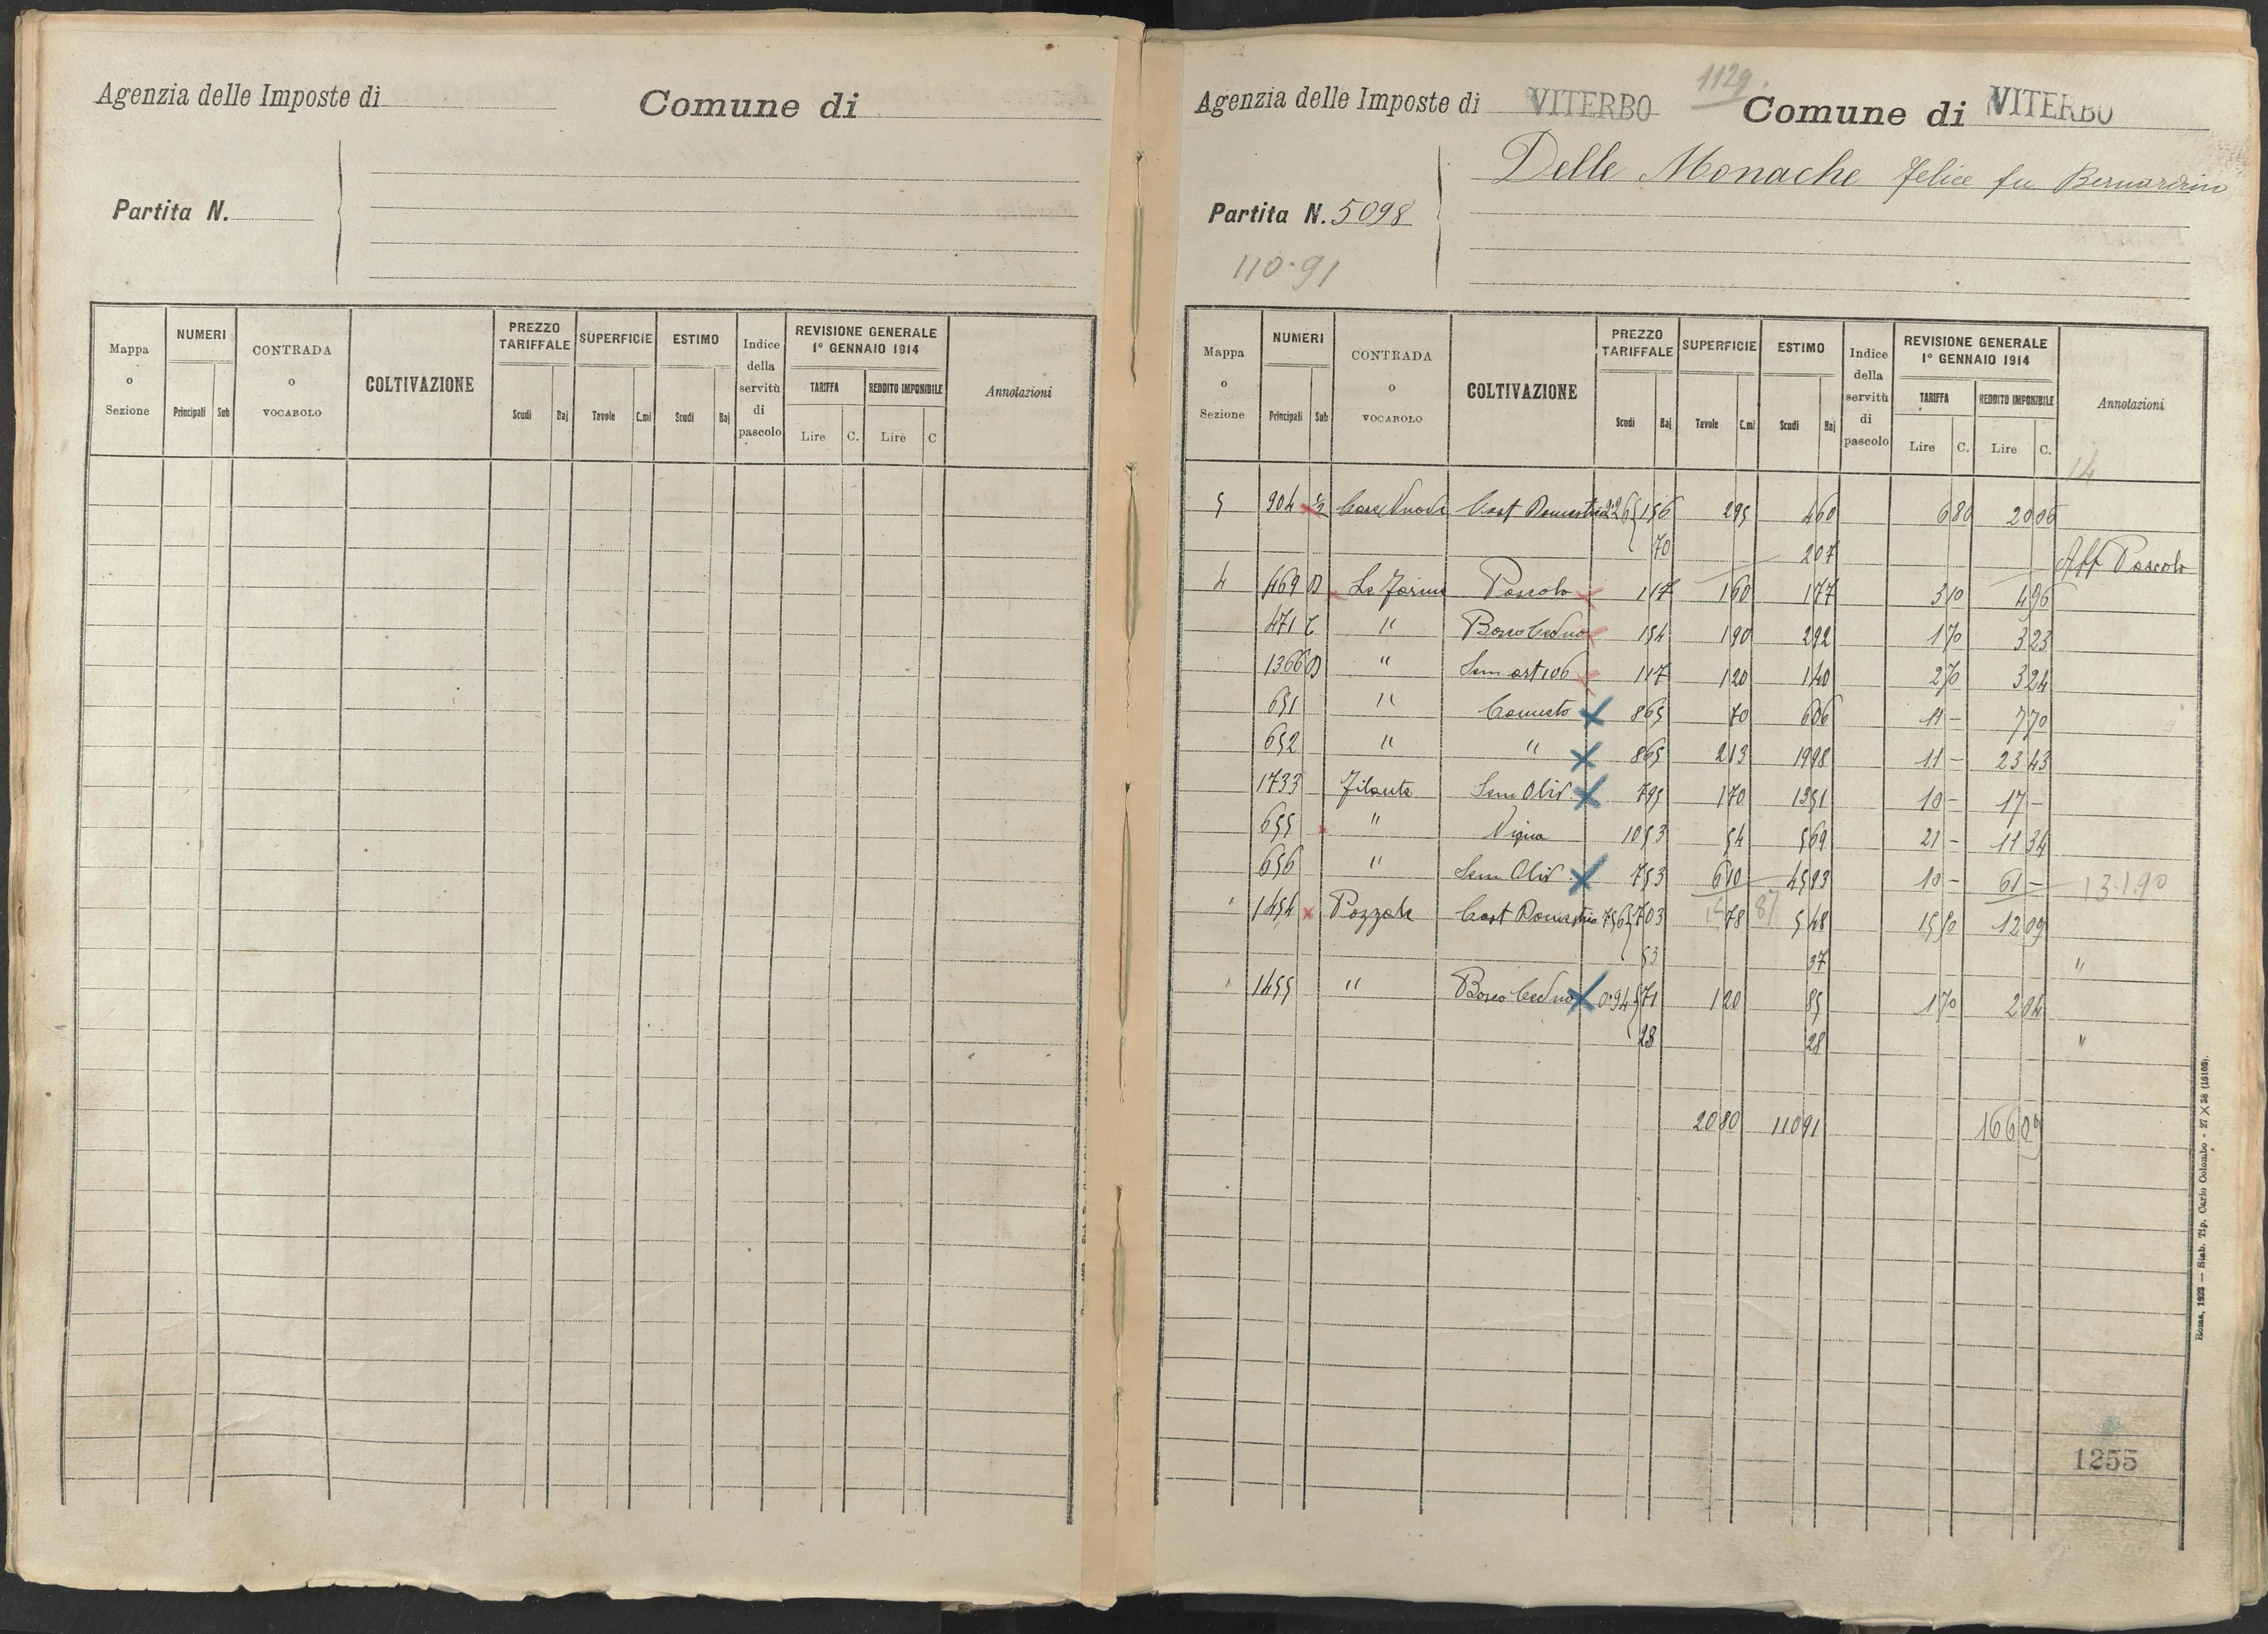 Agenzia delle Imposte di
Comune di
Partita N.
Mappa o Sezione
NUMERI
Principali Sub
CONTRADA o VOCABOLO
COLTIVAZIONE
PREZZO TARIFFALE
Scudi Baj
SUPERFICIE
Tavole C.mi
ESTIMO
Scudi Baj
Indice della servitù di pascolo
REVISIONE GENERALE 1° GENNAIO 1914
TARIFFA
Lire C.
REDDITO IMPONIBILE
Lire C
Annotazioni
1129
Agenzia delle Imposte di VITERBO Comune di VITERBO
Delle Monache Felice fu Bernardino
Partita N. 5098
110.91
Mappa o Sezione
NUMERI
Principali Sub
CONTRADA o VOCABOLO
COLTIVAZIONE
PREZZO TARIFFALE
Scudi Baj
SUPERFICIE
Tavole C.mi
ESTIMO
Scudi Baj
Indice della servitù di pascolo
REVISIONE GENERALE 1° GENNAIO 1914
TARIFFA
Lire C.
REDDITO IMPONIBILE
Lire C.
Annotazioni
14
5 904 1/2 Case Nuove Cast Domestico 226 156 295 460 680 2006
70 207 Aff Pascolo
4 469 D La Farina Pascolo 117 160 177 310 496
471 C " Bosco Ceduo 154 190 292 170 323
1366 D " Sem art 106 117 120 140 270 324
651 " Canneto 865 70 606 11 - 770
652 " " 865 213 1998 11 - 2343
1733 Filante Sem Oliv 795 170 1351 10 - 17 -
655 " Vigna 1053 54 569 21 - 1134
656 " Sem Oliv 753 610 4593 10 - 61 - 131.90
" 1454 Pozzale Cast Domestico 756 703 78 548 1550 1209
53 37 "
" 1455 " Bosco Ceduo 0.94 71 120 85 170 204
23 28 "
2080 11091 16609
1255
Roma, 1923 — Stab. Tip. Carlo Colombo - 27 X 38 (15103).